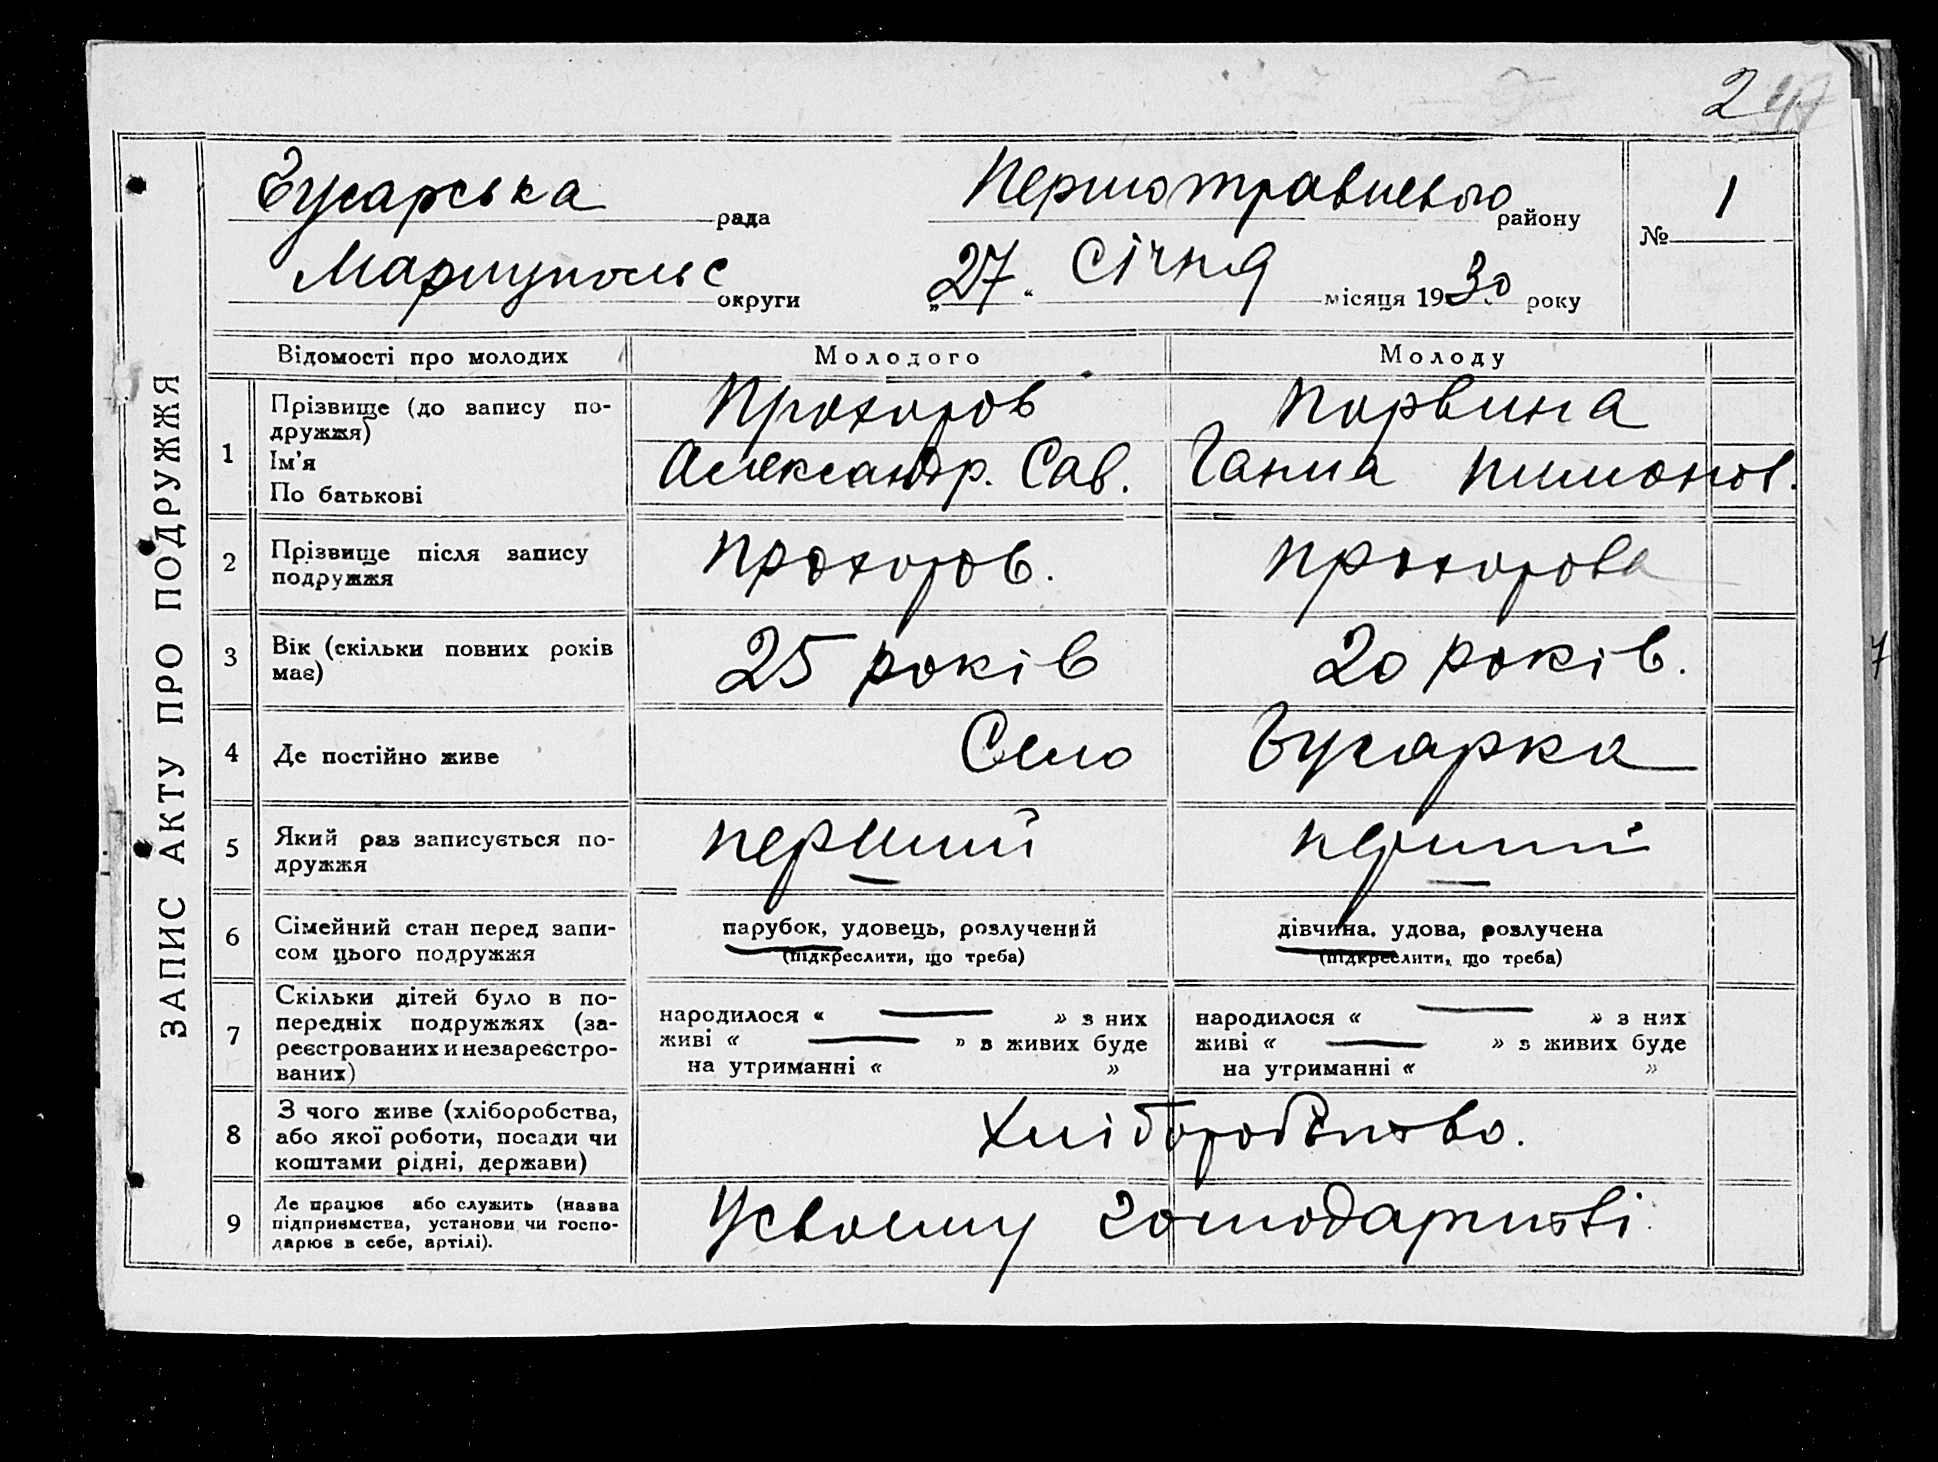 2
Гусарська рада Першотравневого району
№ 1
Маріупольс округи „27“ Січня місяця 1930 року
ЗАПИС АКТУ ПРО ПОДРУЖЖЯ
Відомості про молодих Молодого Молоду
1 Прізвище (до запису по-
дружжя) Прохоров
Ім'я Александр. Сав. Ганна Пимонов.
По батькові
2 Прізвище після запису
подружжя Прохоров. Прохорова
3 Вік (скільки повних років
має) 25 років 20 років.
4 Де постійно живе Село Гусарка
5 Який раз записується по-
дружжя перший перший
6 Сімейний стан перед запи-
сом цього подружжя
парубок, удовець, розлучений
(підкреслити, що треба)
дівчина, удова, розлучена
(підкреслити, що треба)
7 Скільки дітей було в по-
передніх подружжях (за-
реєстрованих и незареєстро-
ваних)
народилося « — » з них
живі « — » з живих буде
на утриманні « »
народилося « — » з них
живі « — » з живих буде
на утриманні « »
8 З чого живе (хліборобства,
або якої роботи, посади чи
коштами рідні, держави)
Хліборобство.
9 Де працює або служить (назва
підприємства, установи чи госпо-
дарює в себе, артілі).
Усвоему господарстві.
7